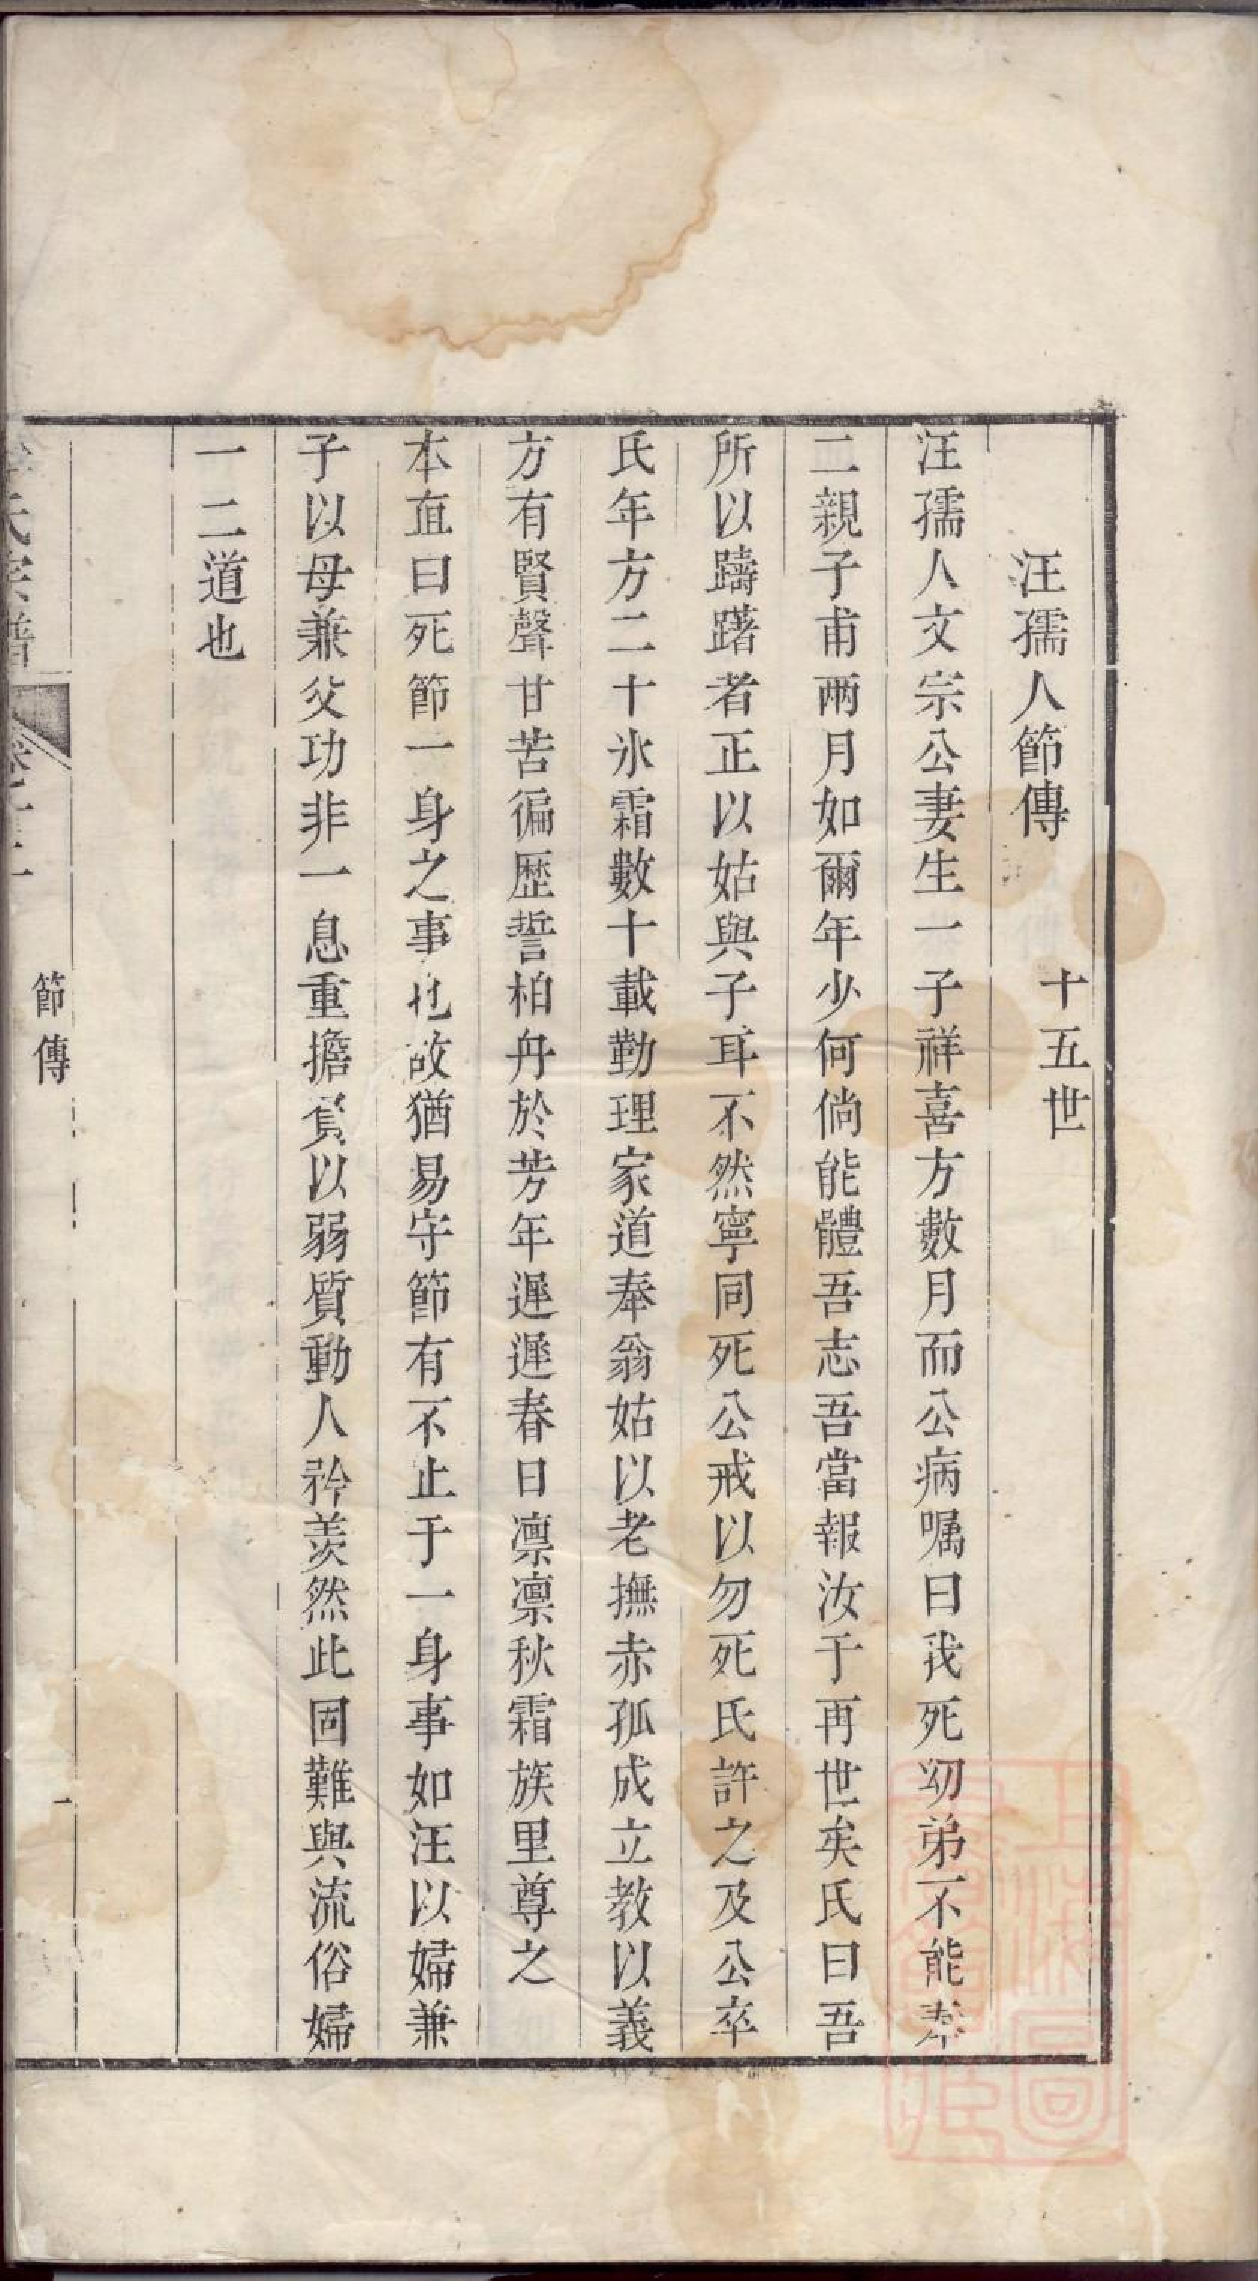 汪孺人節傳
十五世
汪孺人文宗公妻生一子祥喜方數月而公病嘱曰我死幼弟不能奉
二親子甫兩月如爾年少何倘能體吾志吾當報汝于再世矣氏曰吾
所以躊躇者正以姑與子耳不然寧同死公戒以勿死氏許之及公卒
氏年方二十氷霜數十載勤理家道奉翁姑以老撫赤孤成立教以義
方有賢聲甘苦徧歷誓柏舟於芳年遲遲春日凛凛秋霜族里尊之
本直曰死節一身之事也故猶易守節有不止于一身事如汪以婦兼
子以母兼父功非一息重擔負以弱質動人矜羨然此固難與流俗婦
一二道也
氏宗譜
節傳
一
上海圖書館藏